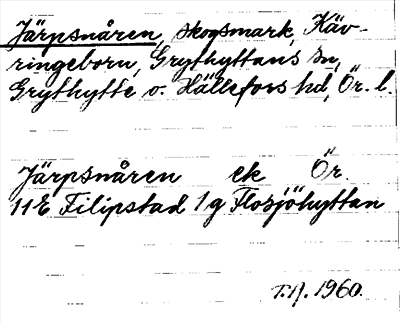 Järpsnåren, skogsmark, Käv-
ringeborn, Grythyttans sn,
Grythytte o. Hällefors hd, Ör. l.
Järpsnåren ek Ör.
11E Filipstad 1g Flosjöhyttan
T.A. 1960.